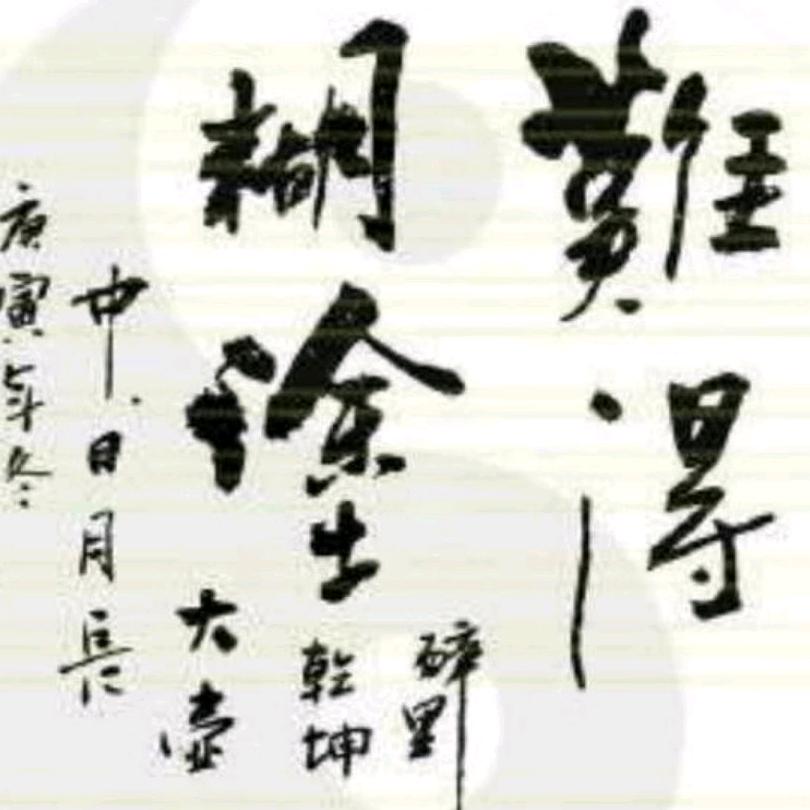 難得
糊塗
醉里
乾坤
大壶
中日月長
庚寅年冬